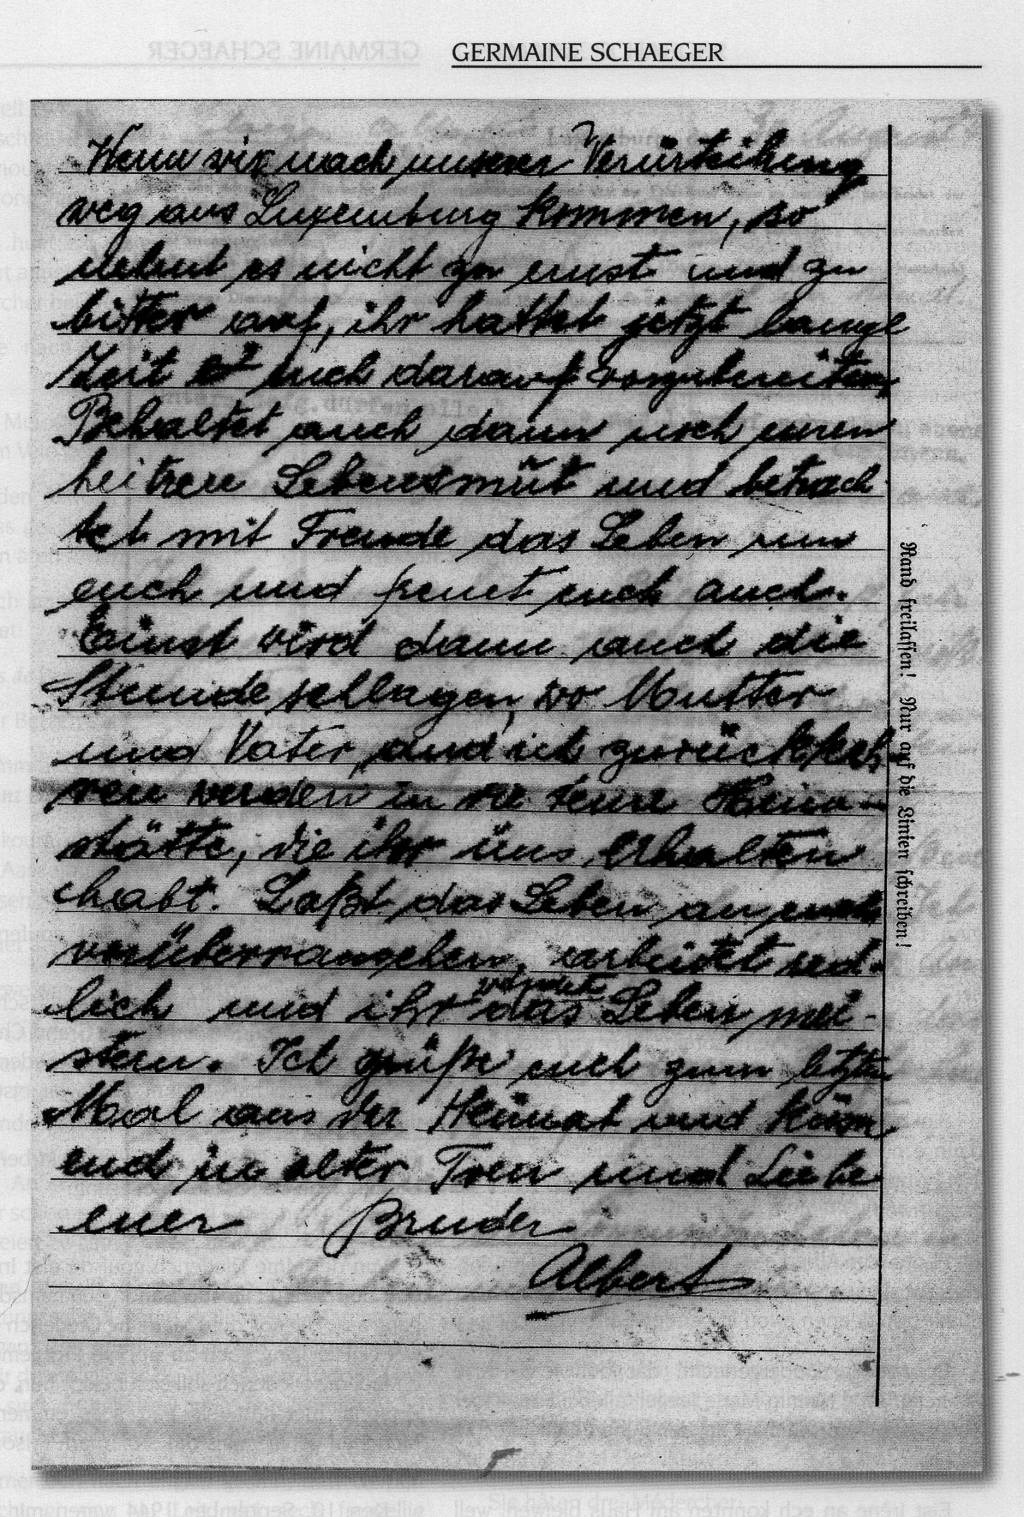 GERMAINE SCHAEGER
Wenn wir nach unserer Verürteihung
weg aus Luxemburg kommen, so
nehmt es nicht zu ernst und zu
bitter auf, ihr hattet jetzt lange
Zeit euch darauf vorzubereiten,
Behaltet auch dann noch euren
heitren Lebensmut und betrach-
tet mit Freude das Leben um
euch und freut euch auch.
Einst wird dann auch die
Stunde schlagen, wo Mutter
und Vater, und ich zurückkeh-
ren werden in die teure Heim-
stätte, die ihr uns erhalten
habt. Laßt das Leben an euch
vorüberrangehen, arbeitet red-
lich und ihr werdet das Leben mei-
stern. Ich grüße euch zum letzten
Mal aus der Heimat und küss
end in alter Treu und Liebe
euer Bruder
Albert
Rand freilassen! Nur auf die Linien schreiben!